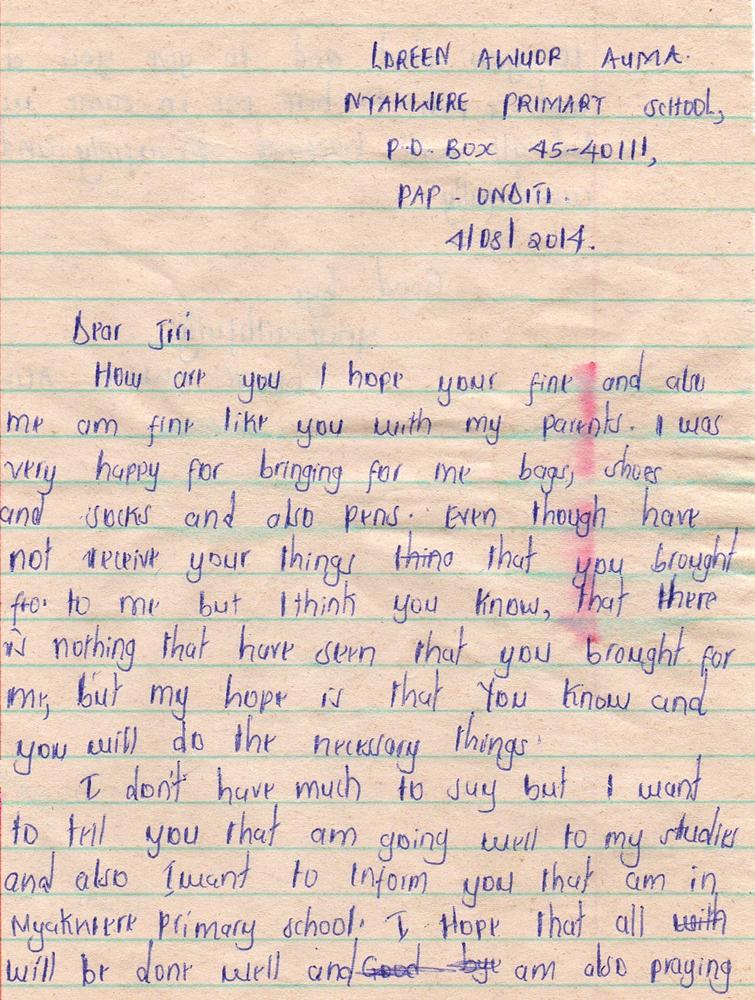 LOREEN AWUOR AUMA.
NYAKWERE PRIMARY SCHOOL,
P.O. BOX 45-40111,
PAP - ONDITI.
4/08/2014.
Dear Jiri
How are you I hope your fine and also
me am fine like you with my parents. I was
very happy for bringing for me bags, shoes
and socks and also pens. Even though have
not receive your things that you brought
to me but I think you know, that there
is nothing that have seen that you brought for
me, but my hope is that You know and
you will do the necessary things.
I don't have much to say but I want
to tell you that am going well to my studies
and also I want to inform you that am in
Nyakwere primary school. I Hope that all with
will be done well and Good bye am also praying